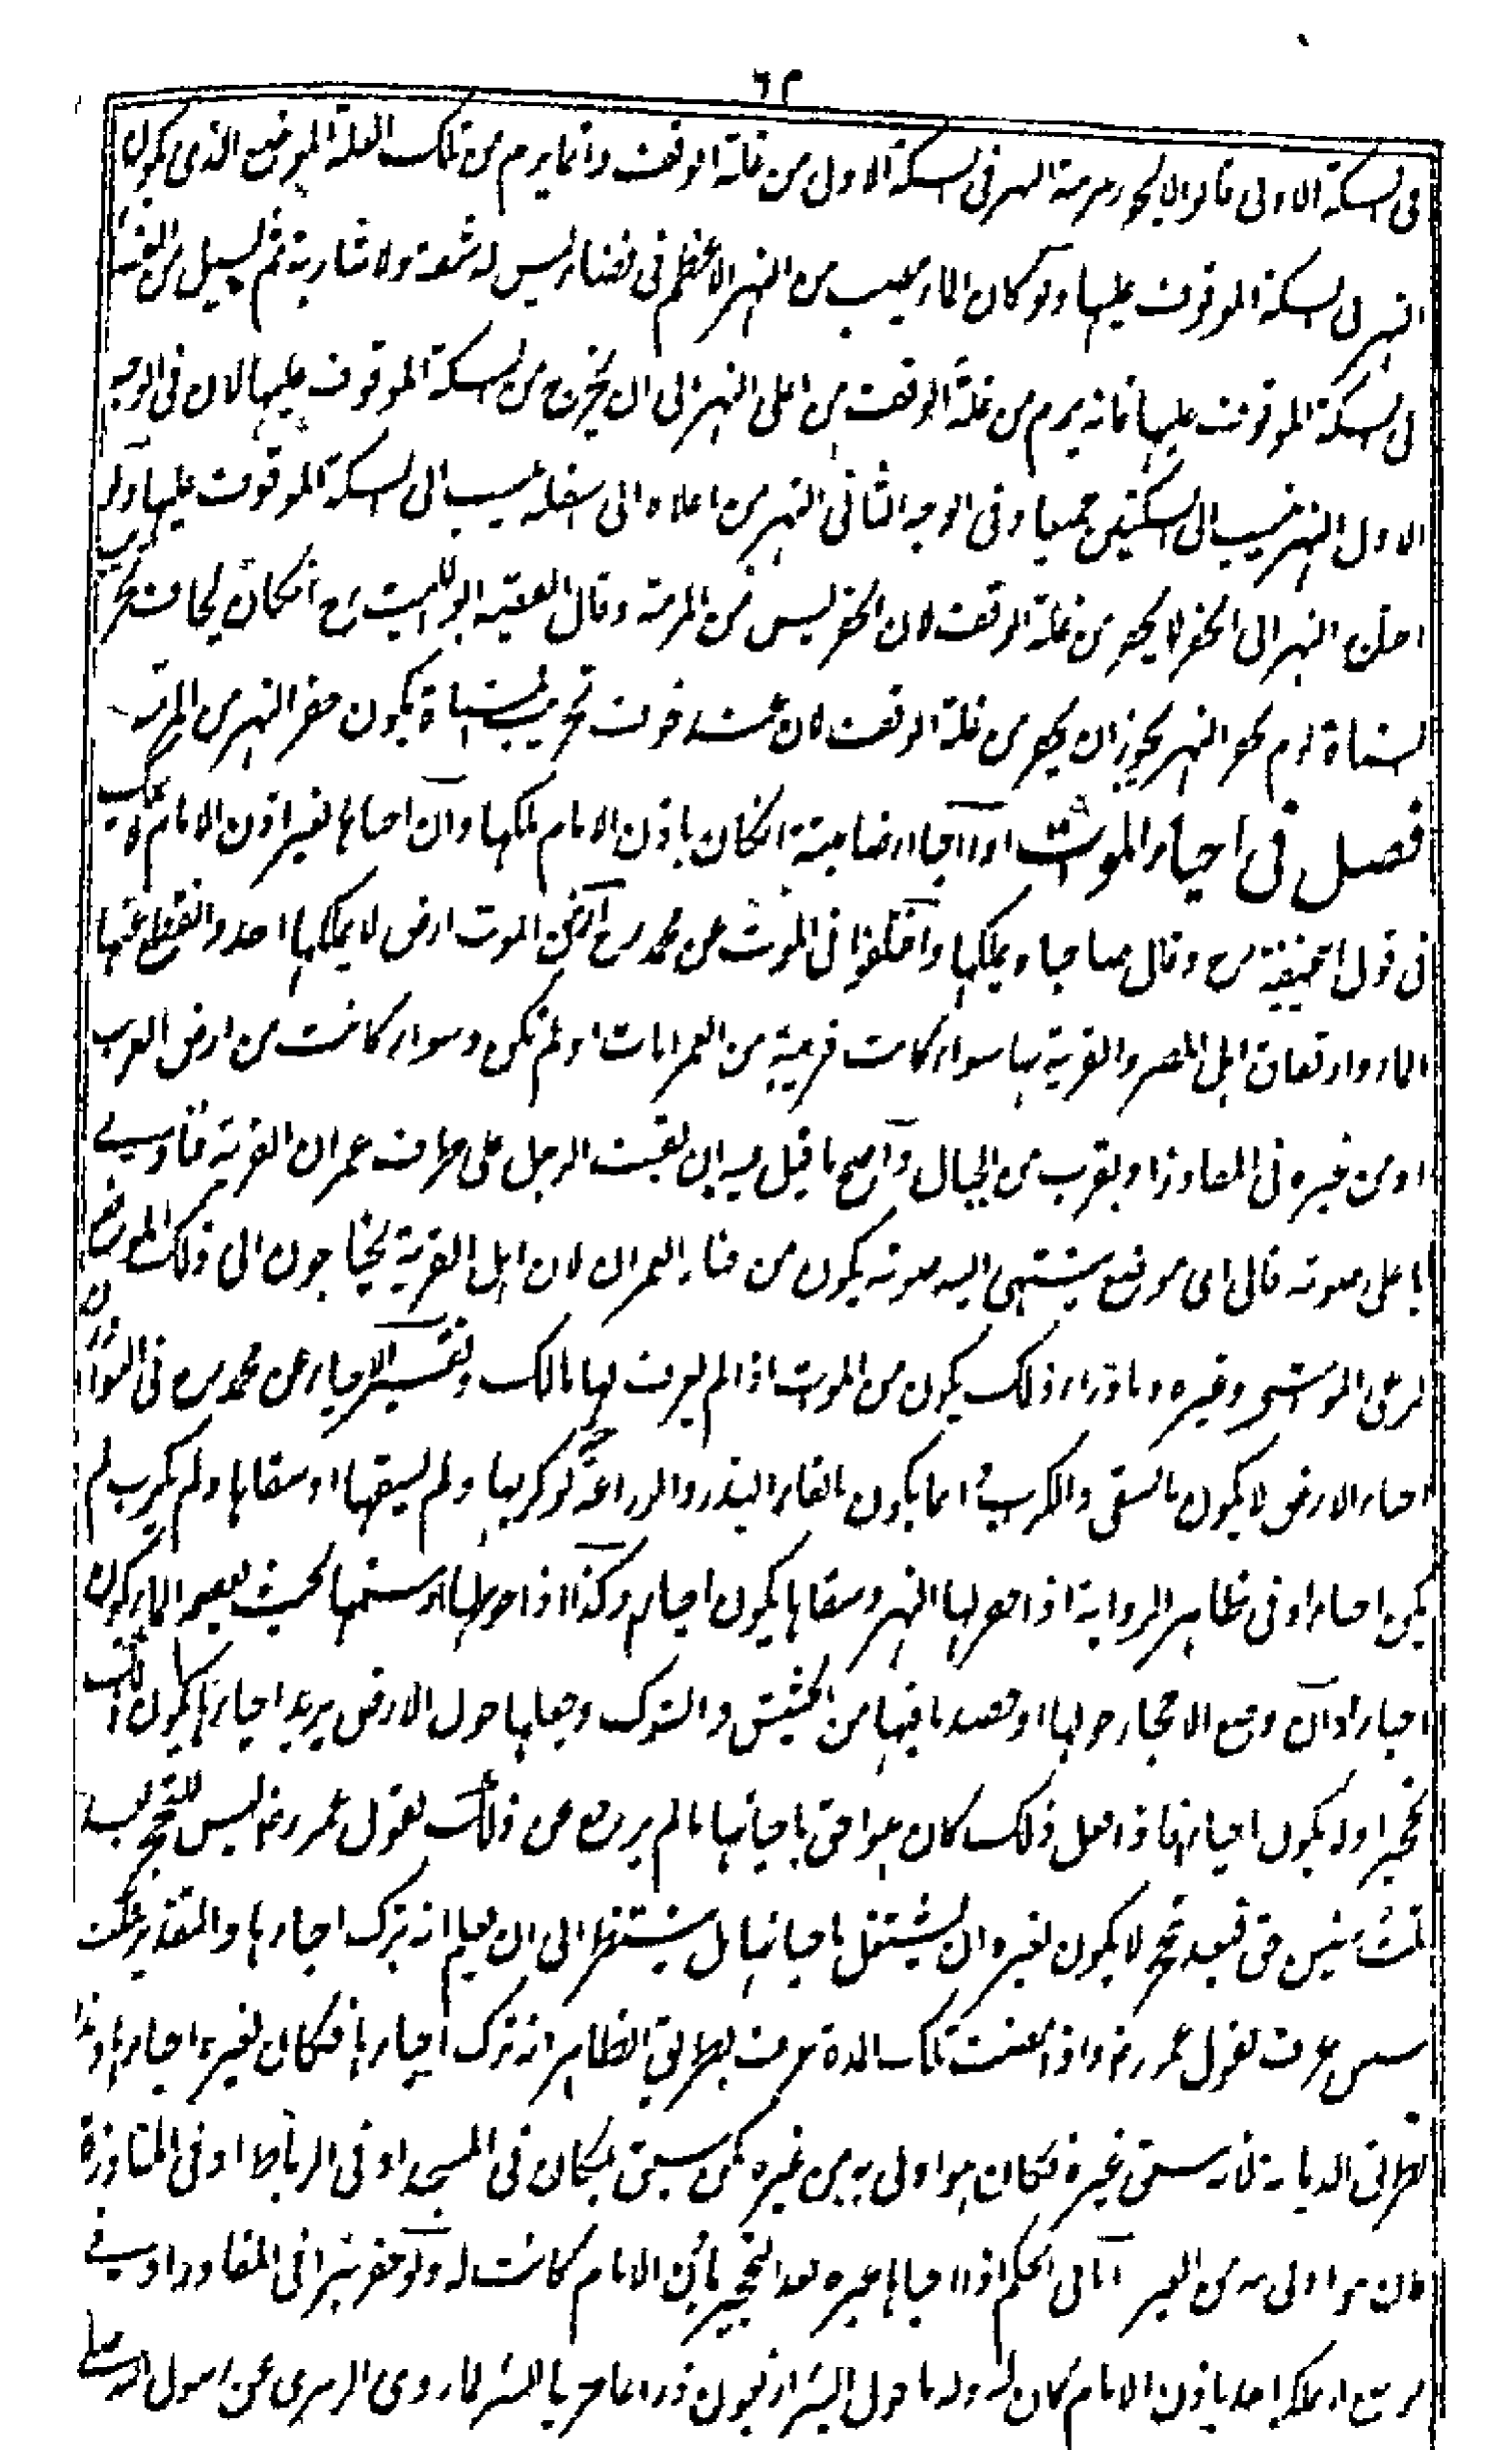 ٦٢
فى السكة الاولى قالوا لا يجوز مرمة النهر فى السكة الاولى من غلة الوقف وانما يرم من تلك الغلة الموضع الذى يكون
النهر فى السكة الموقوف عليها ولو كان الماء يصيب من النهر الاعظم فى فضاء ليس له شفعة ولا شاربة ثم يسيل من الفضاء
فى السكة الموقوف عليها فانه يرم من غلة الوقف من اعلى النهر الى ان يخرج من السكة الموقوف عليها لان فى الوجه
الاول النهر ينسب الى السكتين جميعا وفى الوجه الثانى النهر من اعلاه الى اسفله ينسب الى السكة الموقوف عليها ولو
احتاج النهر الى الحفر لا يحفر من غلة الوقف لان الحفر ليس من المرمة وقال الفقيه ابو الليث رح ان كان يخاف تخريب
المسناة لو لم يحفر النهر يجوز ان يحفر من غلة الوقف لان عند خوف تخريب المسناة يكون حفر النهر من المرمة
فصل فى احياء الموات اذا احيا ارضا ميتة ان كان باذن الامام ملكها وان احياها بغير اذن الامام لا يملك
فى قول ابيحنيفة رح وقال صاحباه يملكها واختلفوا فى الموات عن محمد رح ارض الموت ارض لا يملكها احد وانقطع عنها
الماء وارتفاق اهل المصر والقرية بها سواء كانت قريبة من العمرانات او لم تكن وسواء كانت من ارض العرب
او من غيره فى المفاوز او بقرب من الجبال واصح ما قيل فيه ان يقف الرجل على طرف عمران القرية فينادى
باعلى صوته فالى اى موضع ينتهى اليه صوته يكون من فناء العمران لان اهل القرية يحتاجون الى ذلك الموضع
لرعى المواشى وغيره وما وراء ذلك يكون من الموات اذا لم يعرف لها مالك وتفسير الاحياء عن محمد رح فى النوادر ان
احياء الارض لا يكون بالسقى والكرب انما يكون بالقاء البذر والزراعة حتى لو كربها ولم يسقها او سقاها ولم يكرب لم
يكن احياء وفى ظاهر الرواية اذا حفر لها النهر وسقاها يكون احياء وكذا اذا حوطها او سنمها بحيث يعصم الماء يكون
احياء وان وضع الاحجار حولها او حصد ما فيها من الحشيش والشوك وجعلها حول الارض يريد احياءها يكون ذلك
تحجيرا ولا يكون احياء فاذا فعل ذلك كان هو احق باحيائها ما لم يرجع عن ذلك لقول عمر رض ليس للمتحجر بعد
ثلث سنين حق فبعد التحجر لا يكون لغيره ان يشتغل باحيائها بل ينتظر الى ان يعلم انه ترك احياءها والتقدير بثلث
سنين عرف بقول عمر رض واذا مضت تلك المدة عرف بطريق الظاهر انه ترك احياءها فكان لغيره احياءها وهذا
بطريق الديانة فانه سبق غيره فكان هو اولى به من غيره كمن سبق بمكان فى المسجد او فى الرباط او فى المفازة
كان هو اولى به من الغير اما فى الحكم اذا احياها غيره بعد التحجير باذن الامام كانت له ولو حفر بئرا فى المفاوز او فى
موضع لا يملكه احد باذن الامام كان له وله ما حول البئر اربعون ذراعا حريما للبئر لما روى الزهرى عن رسول الله صلى